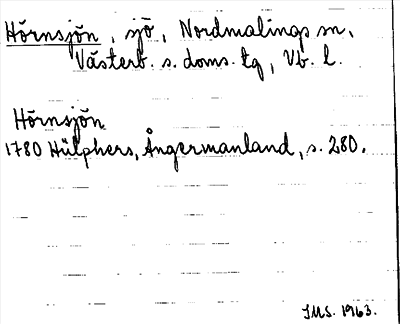 Hörnsjön, sjö, Nordmalings sn,
Västerb. s. doms. tg, Vb. l.
Hörnsjön
1780 Hülphers, Ångermanland, s. 280.
IMS. 1963.